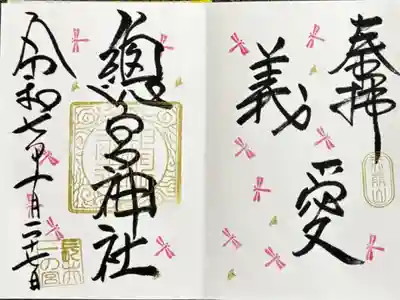 奉拝
義
愛
總宮神社
令和七年十月二十七日
一の宮